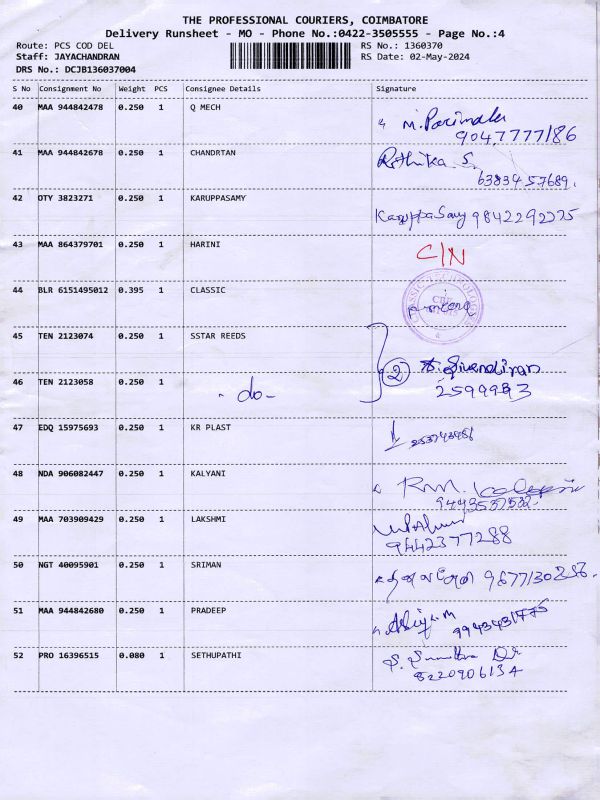 THE PROFESSIONAL COURIERS, COIMBATORE
Delivery Runsheet - MO - Phone No.:0422-3505555 - Page No.:4
Route: PCS COD DEL RS No.: 1360370
Staff: JAYACHANDRAN RS Date: 02-May-2024
DRS No.: DCJB136037004
S No Consignment No Weight PCS Consignee Details Signature
40 MAA 944842478 0.250 1 Q MECH
M. Parimala
9047777186
41 MAA 944842678 0.250 1 CHANDRTAN
Rithika S.
6383457689.
42 OTY 3823271 0.250 1 KARUPPASAMY
Karuppasamy 9842292275
43 MAA 864379701 0.250 1 HARINI
C/N
44 BLR 6151495012 0.395 1 CLASSIC
CLASSIC TECHNOLOGIES
45 TEN 2123074 0.250 1 SSTAR REEDS
2
46 TEN 2123058 0.250 1 - do -
2599993
47 EDQ 15975693 0.250 1 KR PLAST
48 NDA 906082447 0.250 1 KALYANI
9443537532.
49 MAA 703909429 0.250 1 LAKSHMI
9442377288
50 NGT 40095901 0.250 1 SRIMAN
51 MAA 944842680 0.250 1 PRADEEP
52 PRO 16396515 0.080 1 SETHUPATHI
8220906134